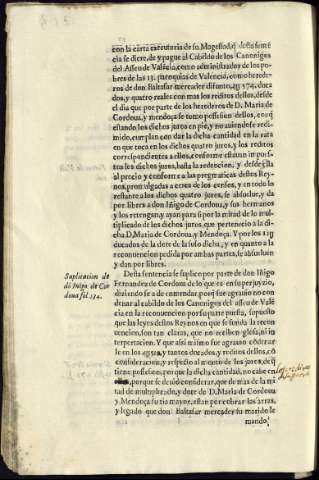 con la carta executoria de su Magestad, q desta senten
cia se diere, de y pague al Cabildo de los Canonigos
del Asseu de Valécia, como administrador de los po-
bres de las 13. parroquias de Valencia, como herede-
ros de don Baltasar mercader difunto, 574, duca
dos, y quatro reales con mas los reditos dellos, desde
el dia que por parte de los herederos de D. Maria de
Cordoua, y mendoça se tomo possession dellos,
estando los dichos juros en pie, y no auiendose redi
mido, cumplan con dar la dicha cantidad en la rata
en que toca en los dichos quatro juros, y los reditos
correspondientes a ellos, conforme estauan impues
tos los dichos juros, hasta la redencion, y desde ella
al precio y conforme a las pregmaticas destos Rey
nos, promulgadas a cerca de los censos, y en todo lo
restante a los dichos quatro juros, se absuelue, y da
por libera don Iñigo de Cordoua, y sus hermanos
y los retengan, y ayan para si por la mitad de lo mul
tiplicado de los dichos juros, que pertenecio a la di-
cha D. Maria de Cordoua, y Mendoça. Y por los
ducados de la dote de la suso dicha, y en quanto a la
reconuencion pedida por ambas partes, se absuluen
y dan por libres.
Desta sentencia se suplico por parte de don Iñigo
Fernandez de Cordoua de lo que es en su perjuyzio,
diziendo se a de enmendar, porq fue agrauio no con
denar al dicho Cabildo de los Canonigos del Asseu de Va-
lécia en la reconuencion por su parte puesta, supuesto
que las leyes destos Reynos en que se funda la recon-
uencion, son tan claras, que no reciben glossa, ni in-
terpretacion. Y que assi mismo fue agrauio conde-
le en los y tantos ducados, y reditos dellos, có
consideracion, y respecto al aumento de los juros, de q
tiene possession, por que la dicha cantidad, no cabe en
porque se deuio considerar, que de mas de la mi
tad de multiplicado, y dote de D. Maria de Cordoua
y Mendoça su tia mayor, estan por cobrar las arras,
y legado que don Baltasar mercader su marido le
mando,
Suplicacion de
dó Iñigo de Cor
doua fol. 174.